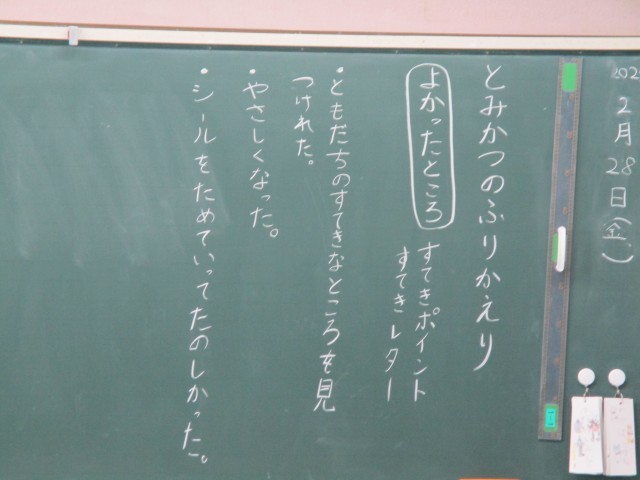 2月28日(金)
とみかつのふりかえり
よかったところ
すてきポイント
すてきレター
・ともだちのすてきなところを見
つけれた。
・やさしくなった。
・シールをためていってたのしかった。